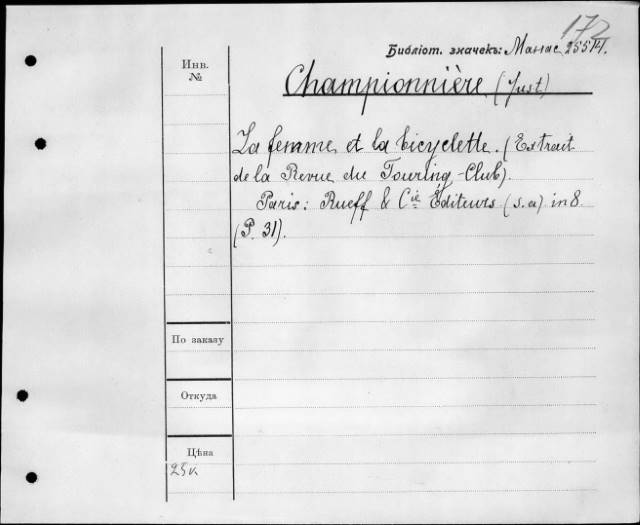 172
Библіот. значекъ: Манас 255/4.
Инв.
№
Championnière (Just)
La femme et la bicyclette. (Extrait
de la Revue du Touring-Club).
Paris: Rueff & Cie Éditeurs (s.a) in 8.
(P. 31).
По заказу
Откуда
Цѣна
25к